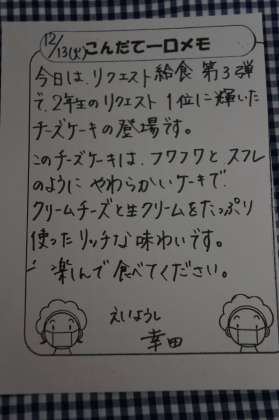 12/13(火)こんだて一口メモ
今日は、リクエスト給食 第3弾
で、2年生のリクエスト 1位に輝いた
チーズケーキの登場です。
このチーズケーキは、フワフワと スフレ
のように やわらかいケーキで、
クリームチーズと生クリームをたっぷり
使ったリッチな味わいです。
楽しんで食べてください。
えいようし
幸田